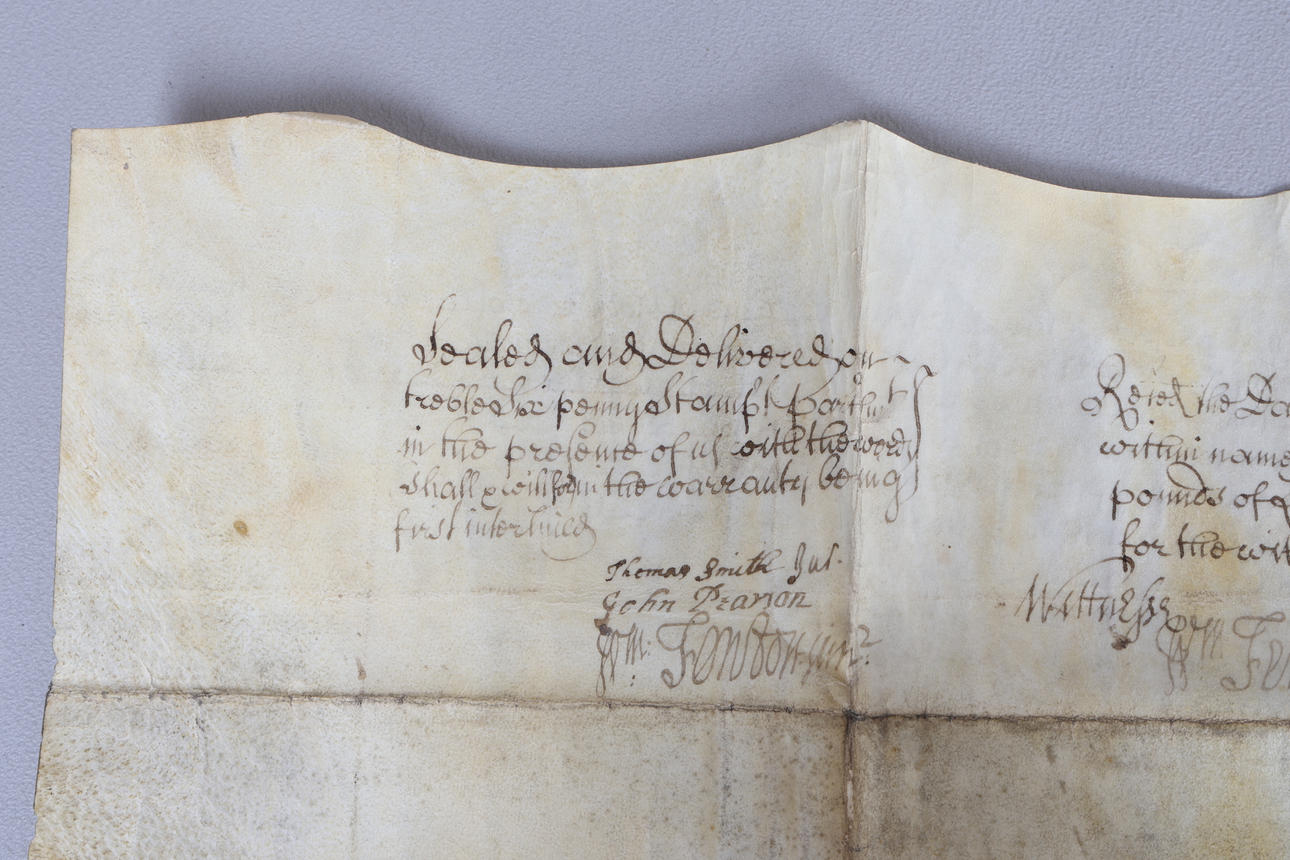 Sealed and Delivered on
treble Six penny Stampt Parchmt
in the presence of us with the words
Shall & will in the warranty being
first interlined
Thomas Smith Jus.
John Pearson
Wm. Fenton junr.
Reced the
within name
pounds of
for the wit
Wittnesse
Wm. Fe